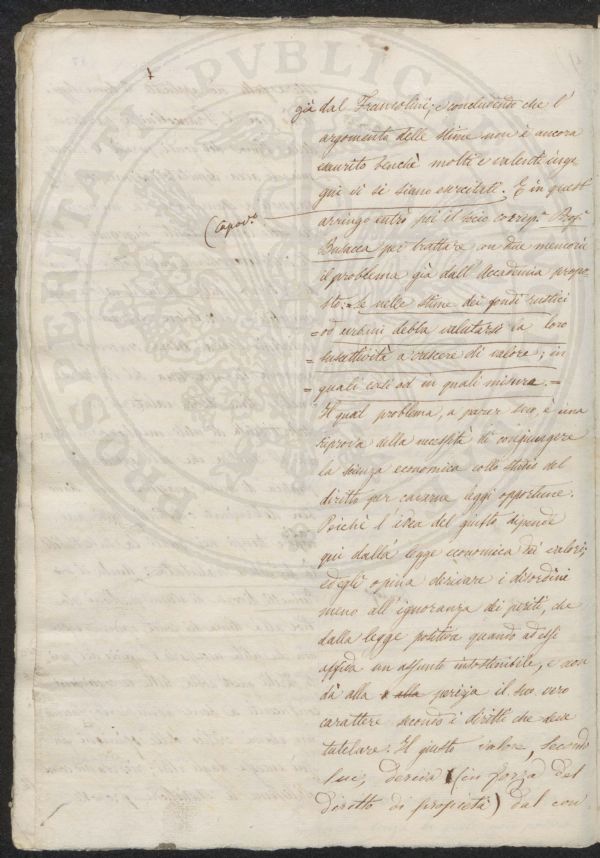 già dal Francolini; e concludendo che l'
argomento delle stime non è ancora
esaurito benchè molti e valenti inge
gni vi si siano esercitati. E in quest'
arringo entrò poi il socio corrisp.e Prof.e
(Capov.o
Busacca per trattare con due memorie
il problema già dall'Accademia propo
sto: = Se nelle stime dei fondi rustici
= od urbani debba valutarsi la loro
= suscettività a crescere di valore; in
= quali casi ed in quali misura. =
Il qual problema, a parer suo, è una
riprova della necessità di congiungere
la scienza economica collo studio del
diritto per cavarne leggi opportune.
Poichè l'idea del giusto dipende
qui dalla legge economica dei valori;
ed egli opina derivare i disordini
meno all'ignoranza dei periti, che
dalla legge positiva quando ad essi
affida un assunto insostenibile, e non
dà alla alla perizia il suo vero
carattere secondo i diritti che deve
tutelare. Il giusto valore, secondo
lui, deriva (in forza del
diritto di proprietà) dal con
PROSPERITATI PVBLICAE